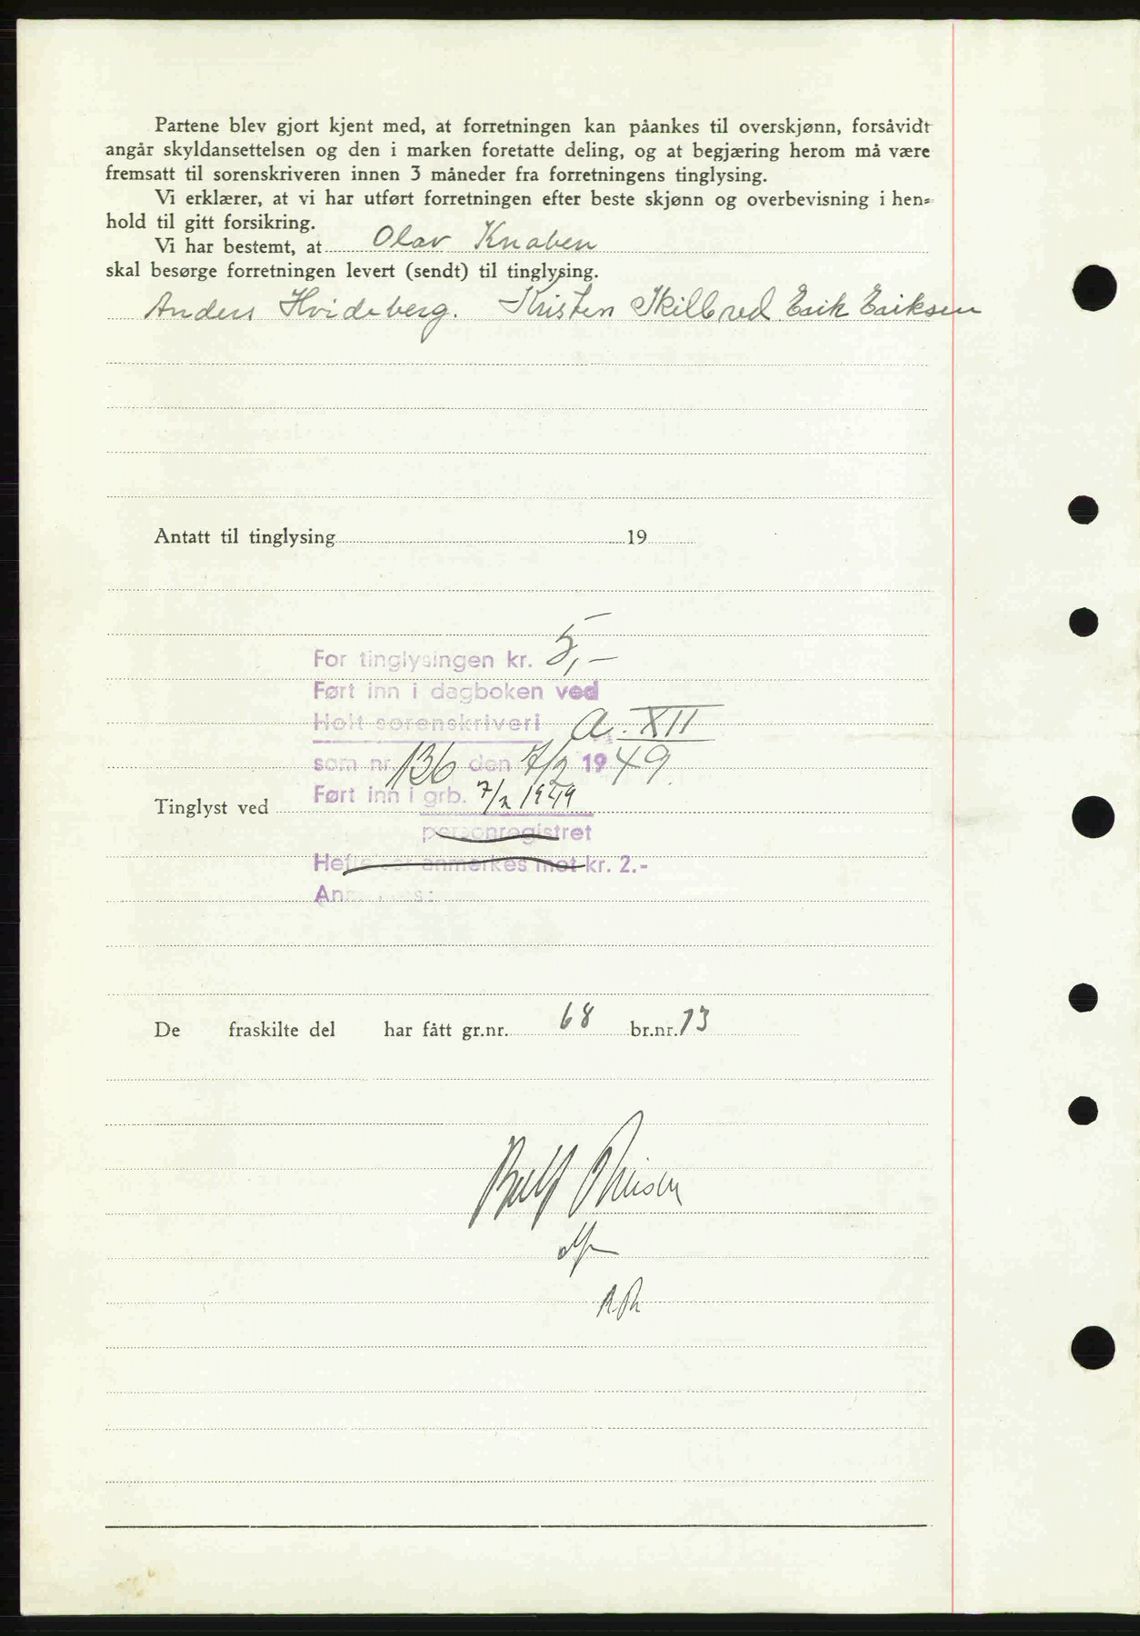 Partene blev gjort kjent med, at forretningen kan påankes til overskjønn, forsåvidt
angår skyldansettelsen og den i marken foretatte deling, og at begjæring herom må være
fremsatt til sorenskriveren innen 3 måneder fra forretningens tinglysing.
Vi erklærer, at vi har utført forretningen efter beste skjønn og overbevisning i hen-
hold til gitt forsikring.
Vi har bestemt, at Olav Knaben
skal besørge forretningen levert (sendt) til tinglysing.
Anders Hvideberg. Kristen Skilbred Erik Eriksen
Antatt til tinglysing 19
For tinglysingen kr. 5,-
Ført inn i dagboken ved
Holt sorenskriveri A. XII
som nr. 136 den 7/2 1949.
Tinglyst ved Ført inn i grb. 7/2 1949
personregistret
Hefte anmerkes mot kr. 2.-
De fraskilte del har fått gr.nr. 68 br.nr. 13